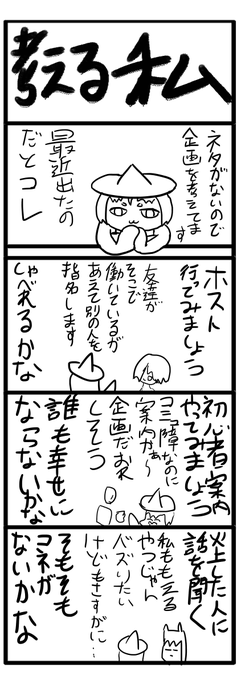 考える私
ネタがないので
企画を考えてます
最近出たの
だとコレ
ホスト
行ってみましょう
友達が
そこで
働いているが
あえて別の人を
指名します
しゃべれるかな
初心者案内
やってみましょう
コミュ障なのに
案内かぁ〜
企画だおれ
しそう
誰も幸せに
ならないかな
炎上した人に
話を聞く
私ももえる
やつじゃん
バズりたい
けどもさすがに…
そもそも
コネが
ないかな